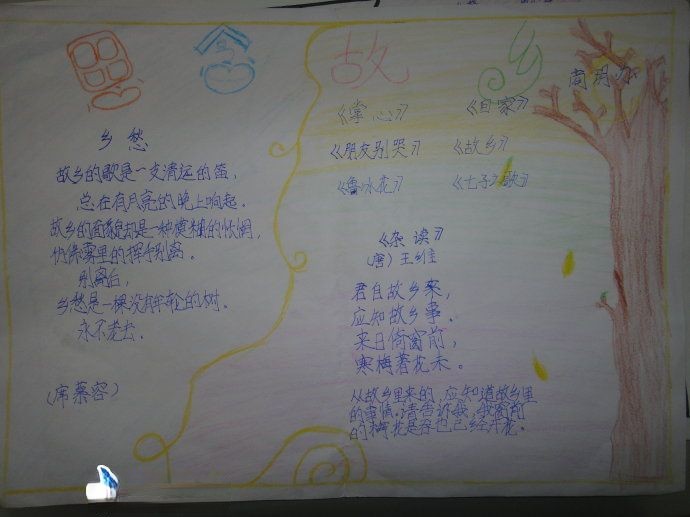 思念故乡
乡愁
故乡的歌是一支清远的笛,
总在有月亮的晚上响起。
故乡的面貌却是一种模糊的怅惘,
仿佛雾里的挥手别离。
别离后,
乡愁是一棵没有年轮的树。
永不老去。
(席慕容)
《掌心》 《回家》
《朋友别哭》 《故乡》
《鲁冰花》 《七子之歌》
《杂诗》
(唐) 王维
君自故乡来,
应知故乡事。
来日倚窗前,
寒梅著花未。
从故乡里来的,应知道故乡里
的事情。请告诉我,我窗前
的梅花是否也已经开花。